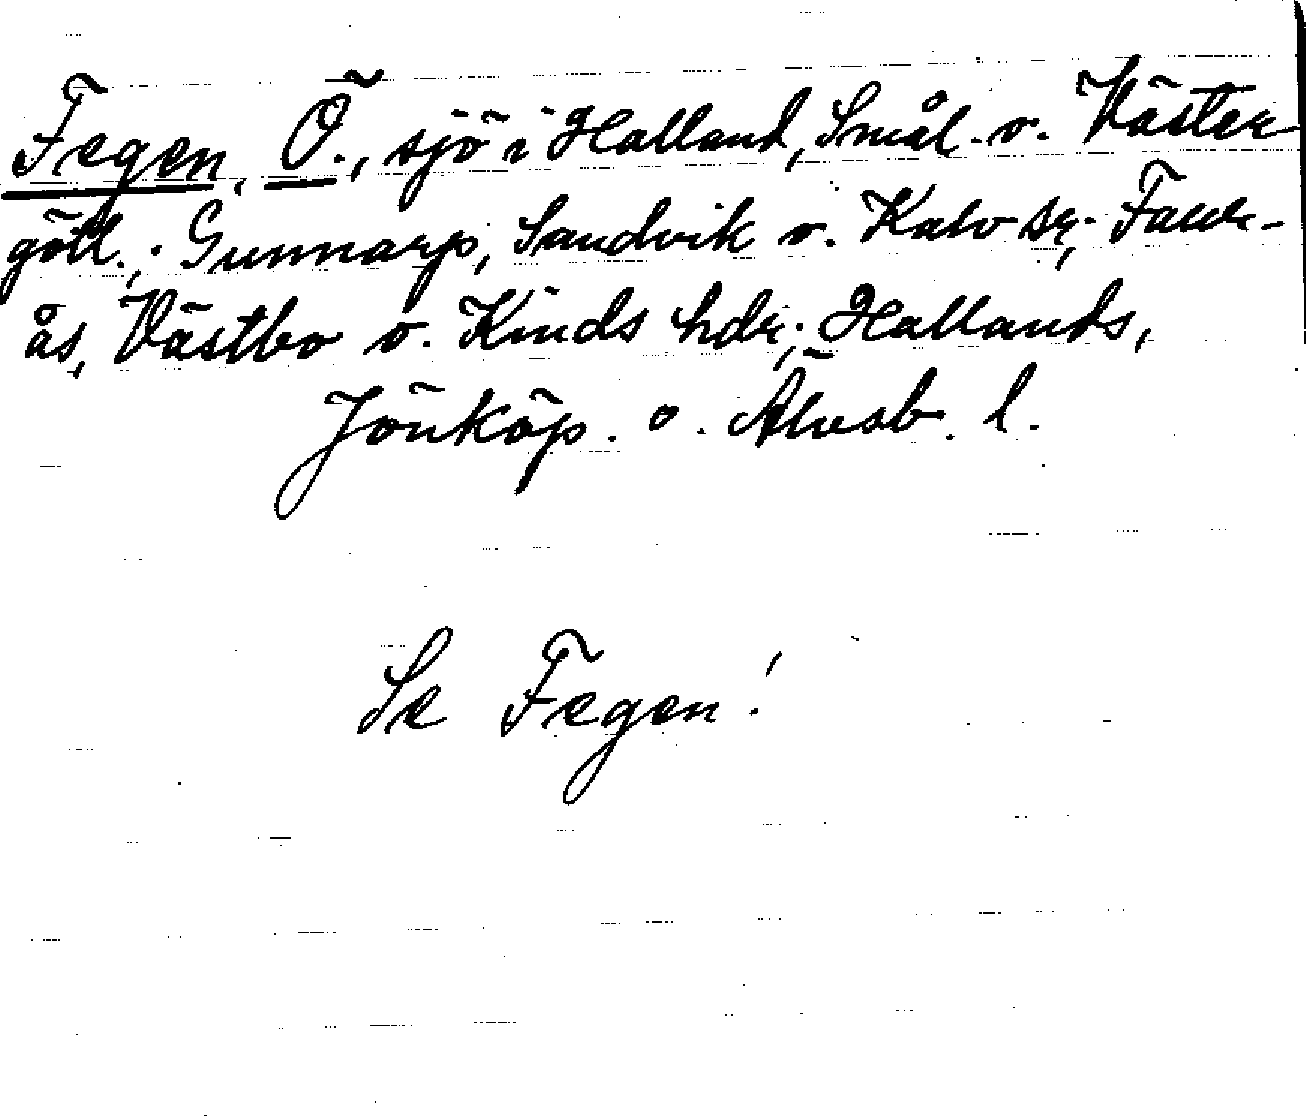 Fegen, Ö., sjö i Halland, Smål. o. Väster
götl.; Gunnarp, Sandvik o. Kalv sr; Faur-
ås, Västbo o. Kinds hdr; Hallands,
Jönköp. o. Älvsb. l.
Se Fegen!